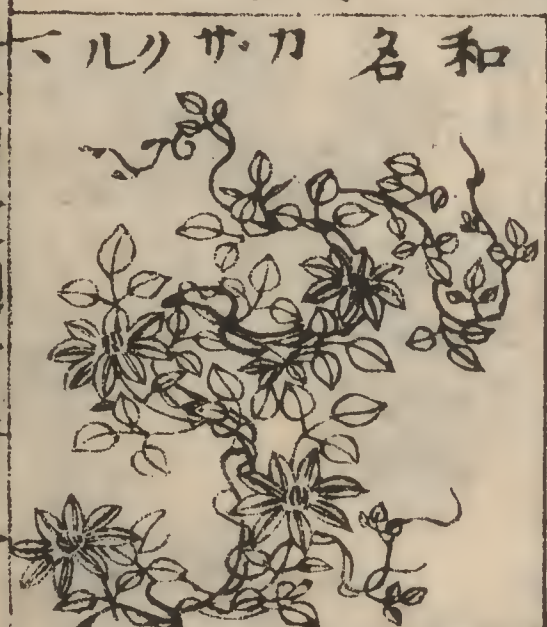 和名 カサクルマ